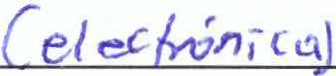 (electrónica)